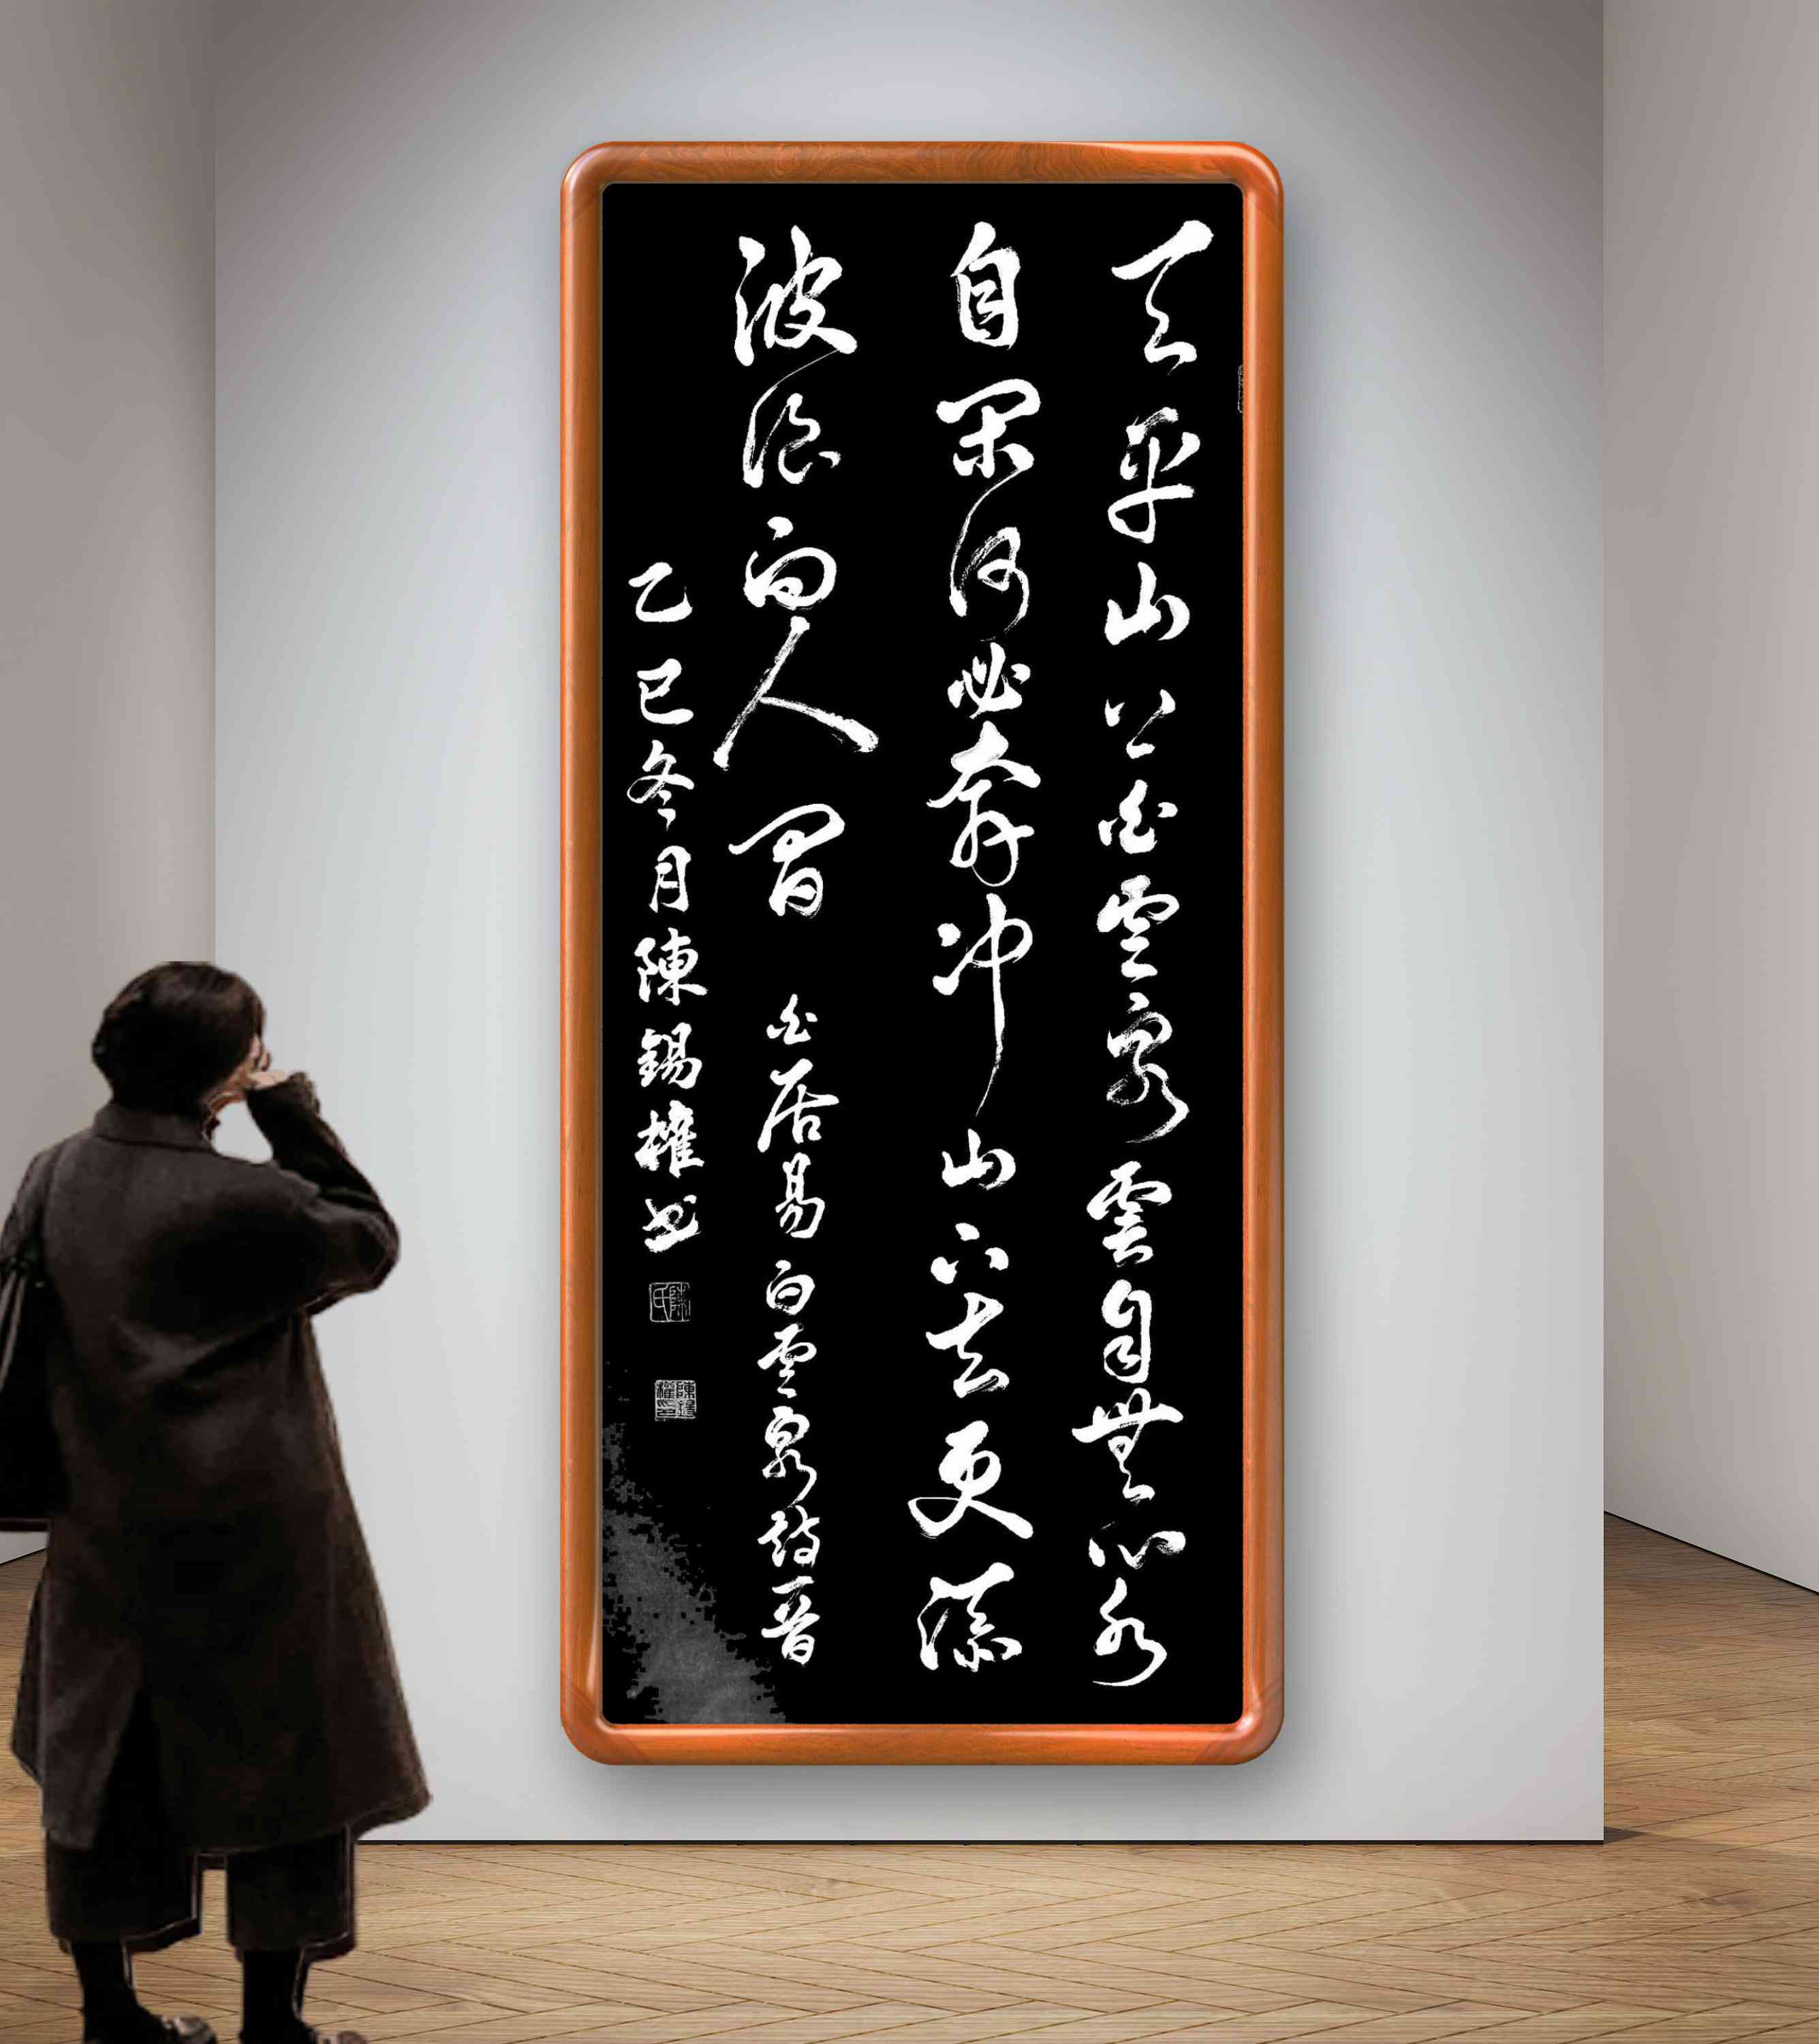 天平山上白雲泉雲自無心水
自閑何必奔冲山下去更添
波浪向人間 白居易白雲泉詩一首
乙巳冬月陳錫權書
陳氏
陳錫權印